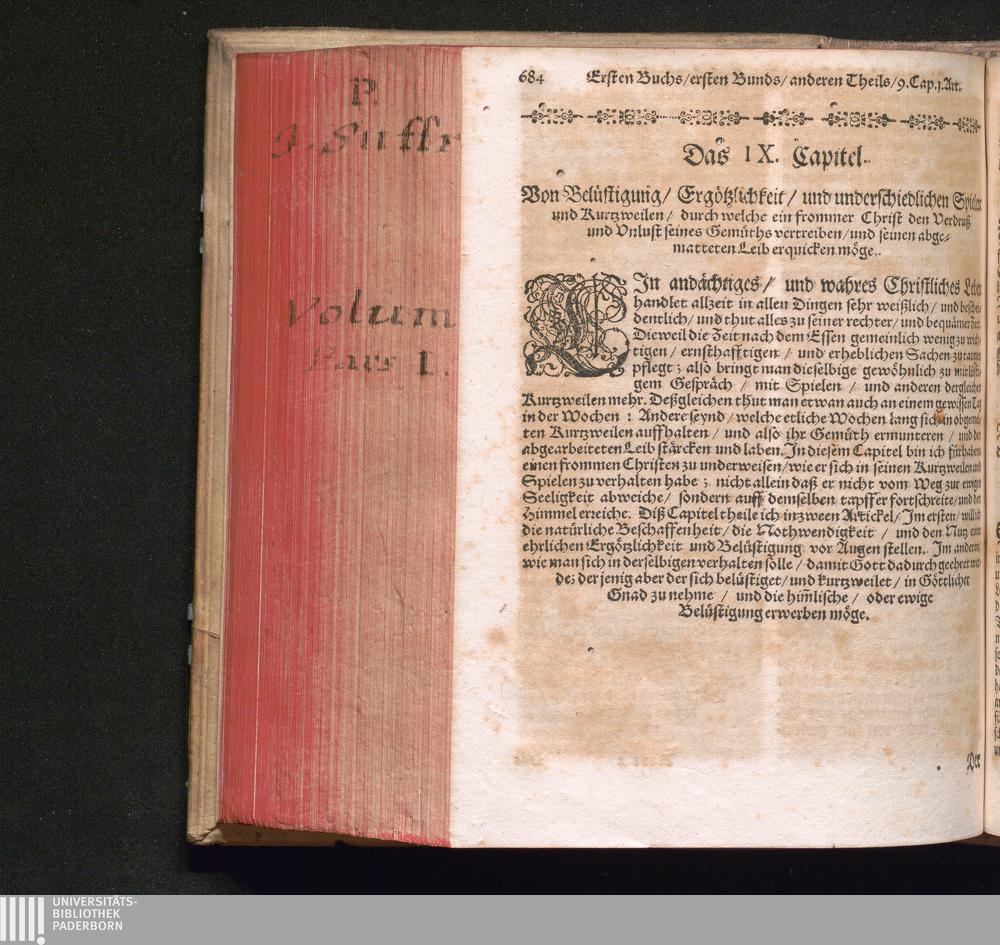 P.
J. Suffr
Volum
Pars I.
684 Ersten Buchs/ersten Bunds/anderen Theils/9.Cap.1.Art.
Das IX. Capitel.
Von Belüstigung/ Ergötzlichkeit/ und underschiedlichen Spielen
und Kurtzweilen/ durch welche ein frommer Christ den Verdruß
und Vnlust seines Gemüths vertreiben/und seinen abge-
matteten Leib erquicken möge.
EIn andächtiges/ und wahres Christliches Leben
handlet allzeit in allen Dingen sehr weißlich/ und beschei
dentlich/ und thut alles zu seiner rechter/ und bequämer Zeit.
Dieweil die Zeit nach dem Essen gemeinlich wenig zu wich
tigen/ ernsthafftigen/ und erheblichen Sachen zu taugen
pflegt; also bringt man dieselbige gewöhnlich zu mit lusti
gem Gespräch/ mit Spielen/ und anderen dergleichen
Kurtzweilen mehr. Deßgleichen thut man etwan auch an einem gewissen Tag
in der Wochen: Andere seynd/ welche etliche Wochen lang sich in obgemel
ten Kurtzweilen auffhalten/ und also ihr Gemüth ermunteren/ und den
abgearbeiteten Leib stärcken und laben. In diesem Capitel bin ich fürhabens
einen frommen Christen zu underweisen/wie er sich in seinen Kurtzweilen und
Spielen zu verhalten habe; nicht allein daß er nicht vom Weg zur ewigen
Seeligkeit abweiche/ sondern auff demselben tapffer fortschreite/und den
Himmel erreiche. Diß Capitel theile ich in zween Artickel/ Im ersten/ will ich
die natürliche Beschaffenheit/ die Nothwendigkeit/ und den Nutz einer
ehrlichen Ergötzlichkeit und Belüstigung vor Augen stellen. Im anderen/
wie man sich in derselbigen verhalten solle/ damit Gott dadurch geehret wer
de; der jenig aber der sich belüstiget/ und kurtzweilet/ in Göttlicher
Gnad zu nehme/ und die him̃lische/ oder ewige
Belüstigung erwerben möge.
Der
UNIVERSITÄTS-
BIBLIOTHEK
PADERBORN